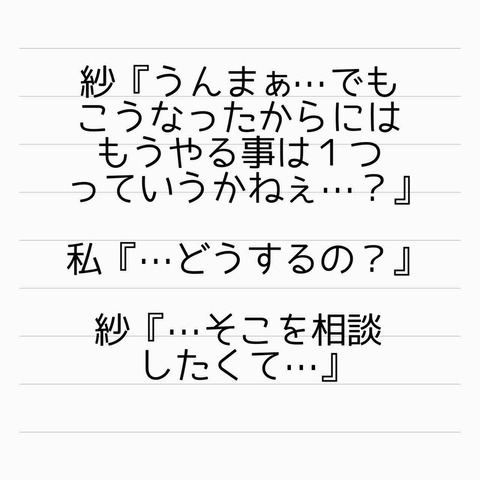 紗『うんまぁ…でも
こうなったからには
もうやる事は１つ
っていうかねぇ…？』
私『…どうするの？』
紗『…そこを相談
したくて…』